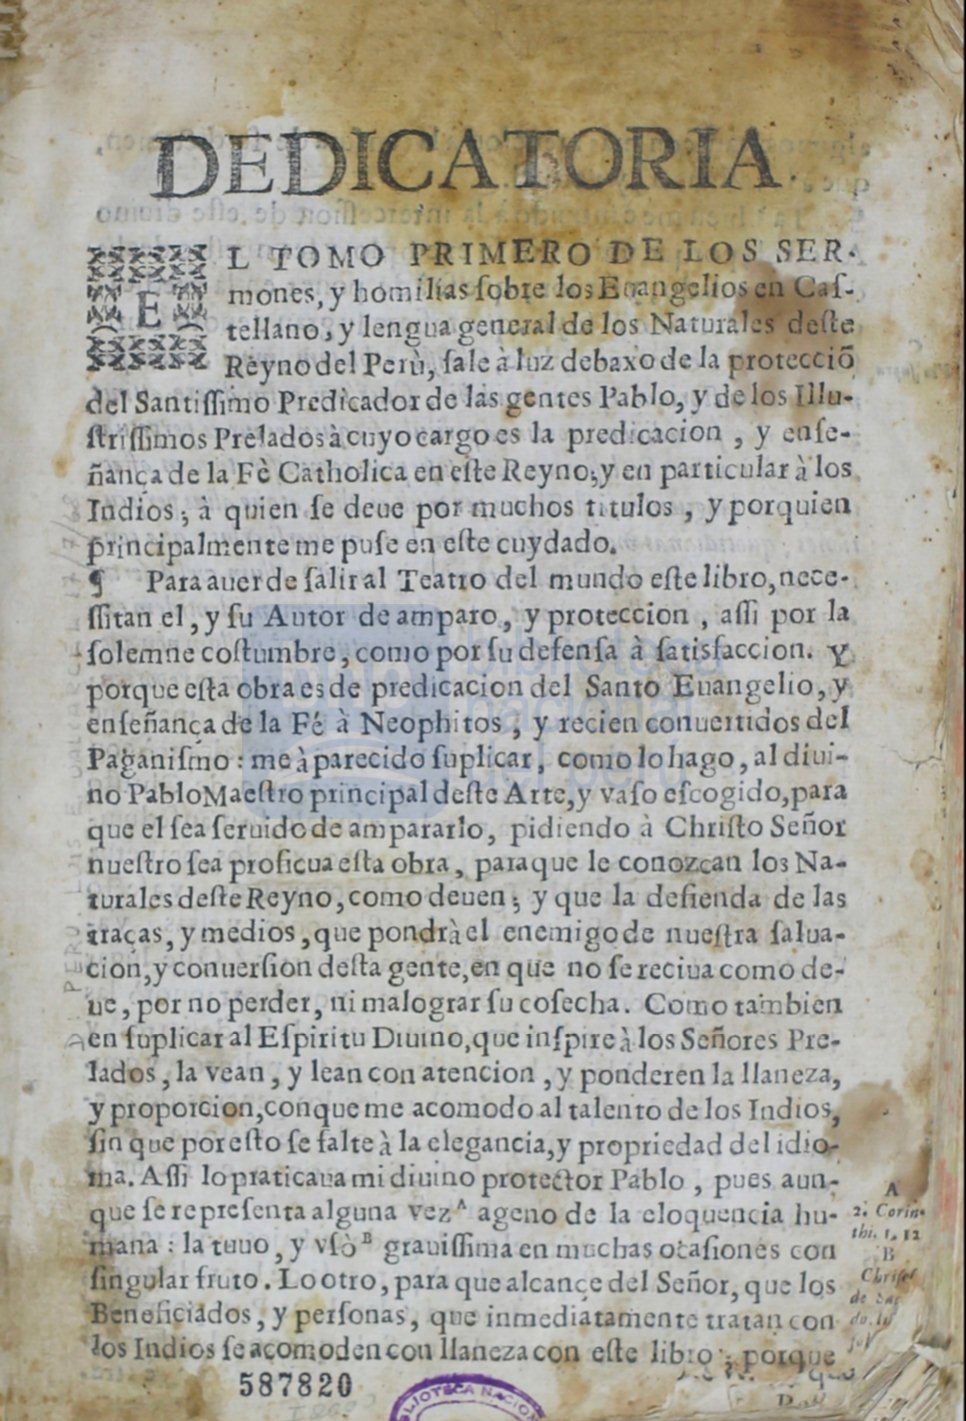 DEDICATORIA.
EL TOMO PRIMERO DE LOS SER-
mones, y homilias ſobre los Euangelios en Caſ-
tellano, y lengua general de los Naturales deſte
Reyno del Perù, ſale à luz debaxo de la protecciõ
del Santiſſimo Predicador de las gentes Pablo, y de los Illu-
ſtriſſimos Prelados à cuyo cargo es la predicacion , y enſe-
ñança de la Fè Catholica en eſte Reyno; y en particular à los
Indios ; à quien ſe deue por muchos titulos , y por quien
principalmente me puſe en eſte cuydado.
¶ Para auer de ſalir al Teatro del mundo eſte libro, nece-
ſſitan el , y ſu Autor de amparo, y proteccion , aſſi por la
ſolemne coſtumbre, como por ſu defenſa à ſatisfaccion. Y
porque eſta obra es de predicacion del Santo Euangelio, y
enſeñança de la Fé à Neophitos , y recien conuertidos del
Paganiſmo : me à parecido ſuplicar, como lo hago, al diui-
no Pablo Maeſtro principal deſte Arte, y vaſo eſcogido, para
que el ſea ſeruido de ampararlo, pidiendo à Chriſto Señor
nueſtro ſea proficua eſta obra, para que le conozcan los Na-
turales deſte Reyno, como deuen ; y que la defienda de las
traças, y medios, que pondrà el enemigo de nueſtra ſalua-
cion, y conuerſion deſta gente, en que no ſe reciua como de-
ue, por no perder, ni malograr ſu coſecha. Como tambien
en ſuplicar al Eſpiritu Diuino, que inſpire à los Señores Pre-
lados, la vean, y lean con atencion, y ponderen la llaneza,
y proporcion, con que me acomodo al talento de los Indios,
ſin que por eſto ſe falte à la elegancia, y propriedad del idio-
ma. Aſſi lo praticaua mi diuino protector Pablo , pues aun-
que ſe repreſenta alguna vez ᴬ ageno de la eloquencia hu-
mana : la tuuo, y vſò ᴮ grauiſſima en muchas ocaſiones con
ſingular fruto. Lo otro, para que alcançe del Señor, que los
Beneficiados, y perſonas, que inmediatamente tratan con
los Indios ſe acomoden con llaneza con eſte libro ; porque
A
2. Corin-
thi. 1. 12
B
Chriſoſ
de
587820
BIBLIOTECA NACIONAL
biblioteca
nacional
del perú